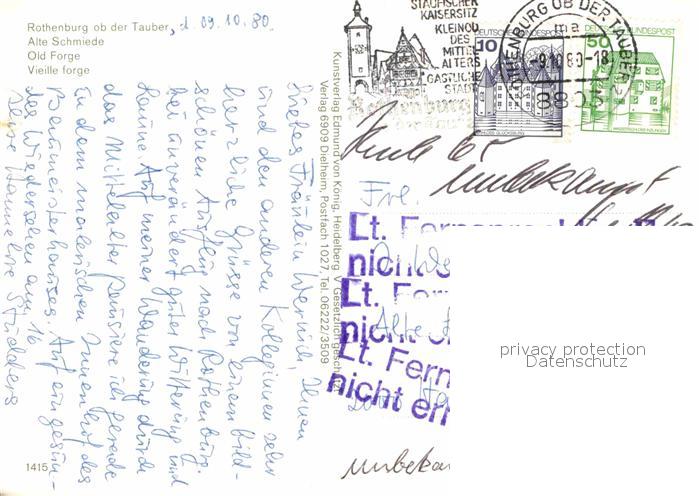 Rothenburg ob der Tauber, d. 09.10.80.
Alte Schmiede
Old Forge
Vieille forge
Liebes Fräulein Wernich, Ihnen
und den anderen Kolleginnen sehr
herzliche Grüsse von einem bild-
schönen Ausflug nach Rothenburg.
bei unverändert guter Witterung und
Laune. Auf meiner Wanderung durch
das Mittelalter pausiere ich gerade
in dem malerischen Innenhof des
Baumeisterhauses. Auf ein gesun-
des Wiedersehen am 16.
Ihre Hannelore
1415
Kunstverlag Edmund von König, Heidelberg V Gesetzlich geschützt
Verlag 6909 Dielheim, Postfach 1027, Tel. 06222/3509
STAUFISCHER
KAISERSITZ
KLEINOD
DES
MITTEL
ALTERS
GASTLICHE
STADT
Rothenburg
ROTHENBURG OB DER TAUBER 2
ma
-9.10.80-18
8803
10
DEUTSCHE BUNDESPOST
SCHLOSS GLÜCKSBURG
50
DEUTSCHE BUNDESPOST
WASSERSCHLOSS INZLINGEN
unbekannt
Frl.
Lt. Fernsp
nicht
Lt. Fern
nicht
Alte
Lt. Fern
nicht er
unbekan
privacy protection
Datenschutz